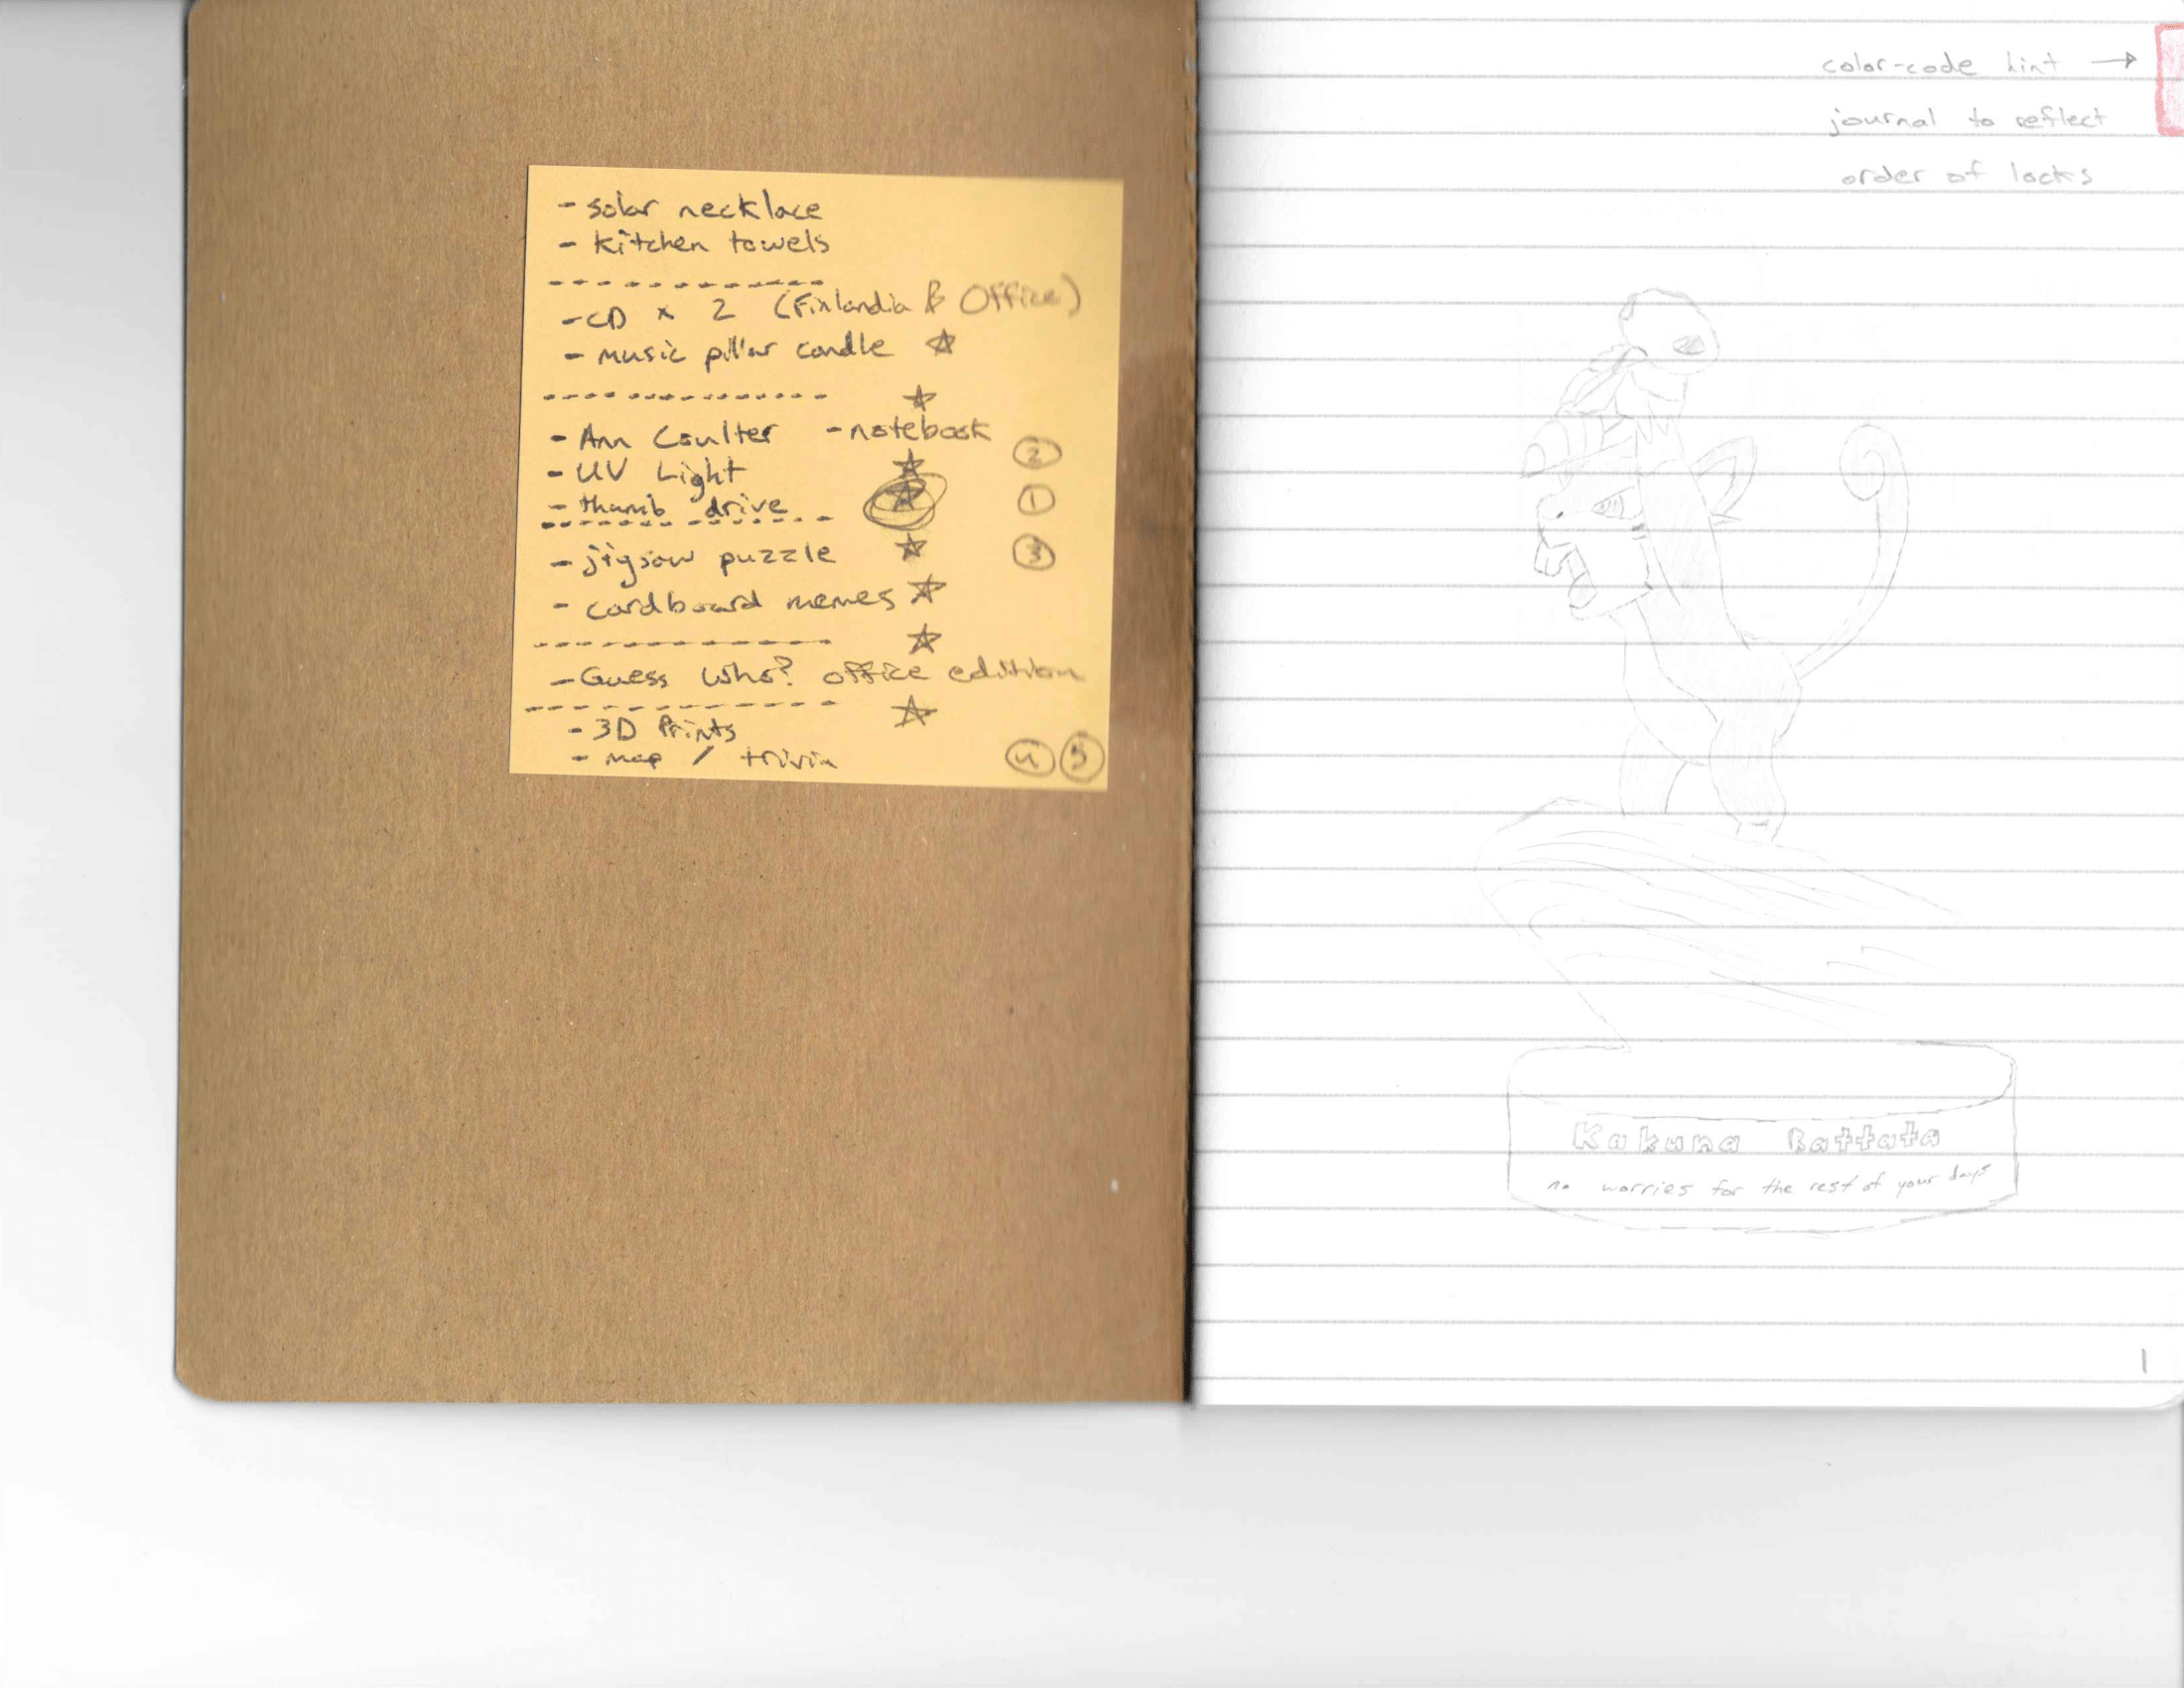 - solar necklace
- kitchen towels
- CD x 2 (Finlandia & Office)
- music pillar candle
- Ann Coulter - notebook
- UV Light
2
- thumb drive
1
- jigsaw puzzle
3
- cardboard memes
- Guess Who? office edition
- 3D Prints
- map / trivia
4 5
color-code hint →
journal to reflect
order of locks
Kakuna Rattata
no worries for the rest of your days
1